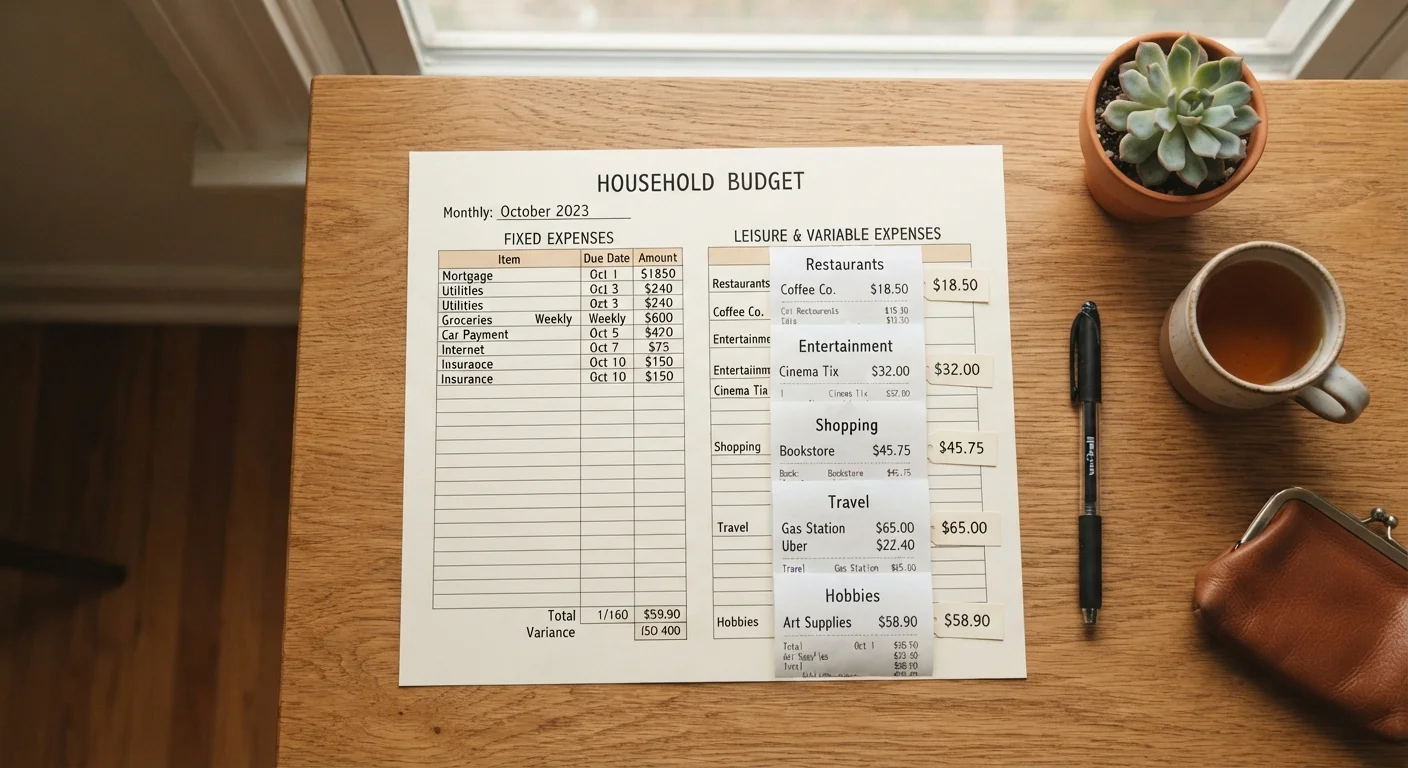 HOUSEHOLD BUDGET
Monthly: October 2023
FIXED EXPENSES
Item Due Date Amount
Mortgage Oct 1 $1850
Utilities Oct 3 $240
Utilities Ozt 3 $240
Groceries Weekly Weekly $600
Car Payment Oct 5 $420
Internet Oct 7 $75
Insuraoce Oct 10 $150
Insurance Oct 10 $150
Total 1/160 $59.90
Variance 150 400
LEISURE & VARIABLE EXPENSES
Restaurants
Coffee Co.
Entertainme
Entertainm
Cinema Tix
Shopping
Travel
Hobbies
Restaurants
Coffee Co. $18.50
$15.30
Entertainment
Cinema Tix $32.00
Shopping
Bookstore $45.75
Bookstore
Travel
Gas Station $65.00
Uber $22.40
Gas Station
Hobbies
Art Supplies $58.90
Total Oct 1
$18.50
$32.00
$45.75
$65.00
$58.90
uni-ball